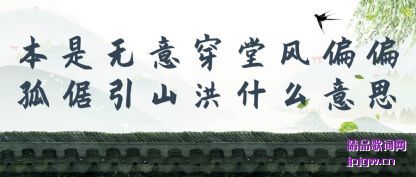 本是无意穿堂风偏偏
孤倨引山洪什么意思
精品歌词网
jpjgw.cn